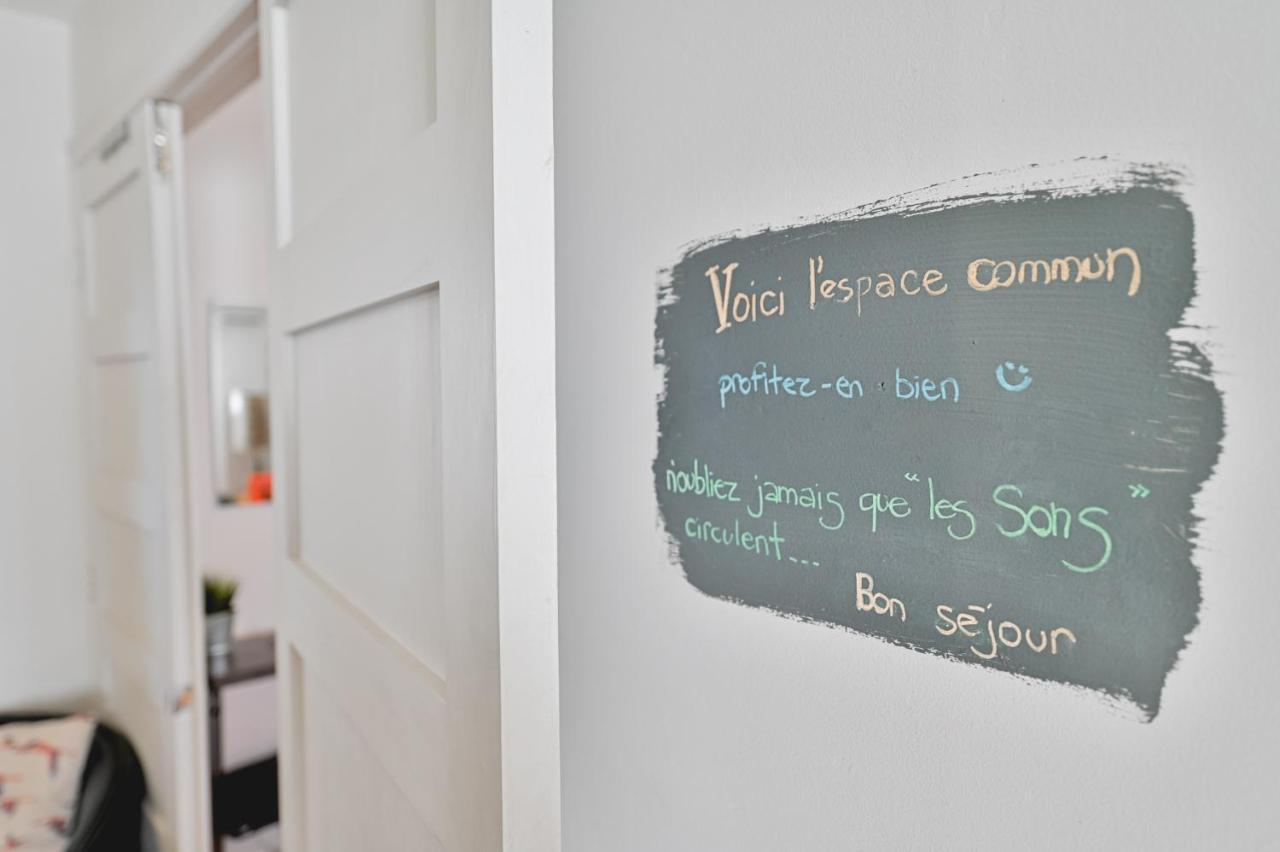 Voici l'espace commun
profitez-en bien
n'oubliez jamais que "les Sons"
circulent...
Bon séjour